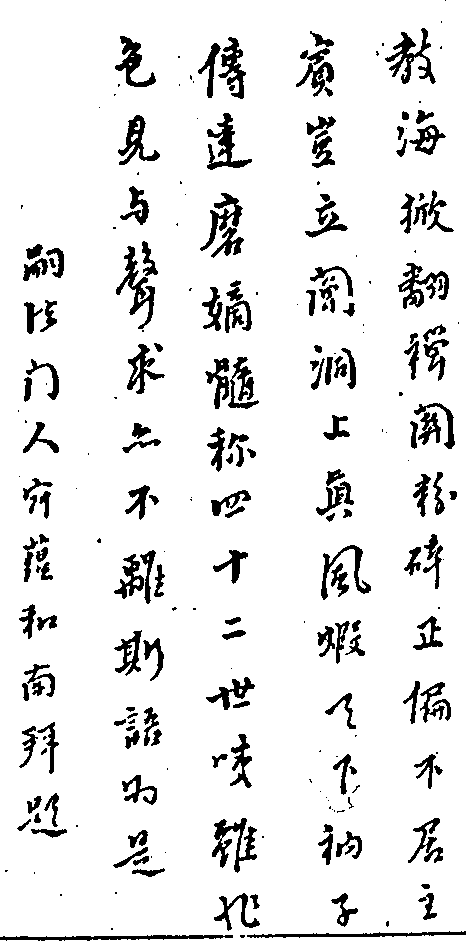 教海掀翻禪關粉碎正偏不居主
賓豈立闡洞上真風蝦天下衲子
傳達磨嫡髓称四十二世唛雖非
色見与聲求亦不離斯語的是
嗣法门人宗蘊和南拜題